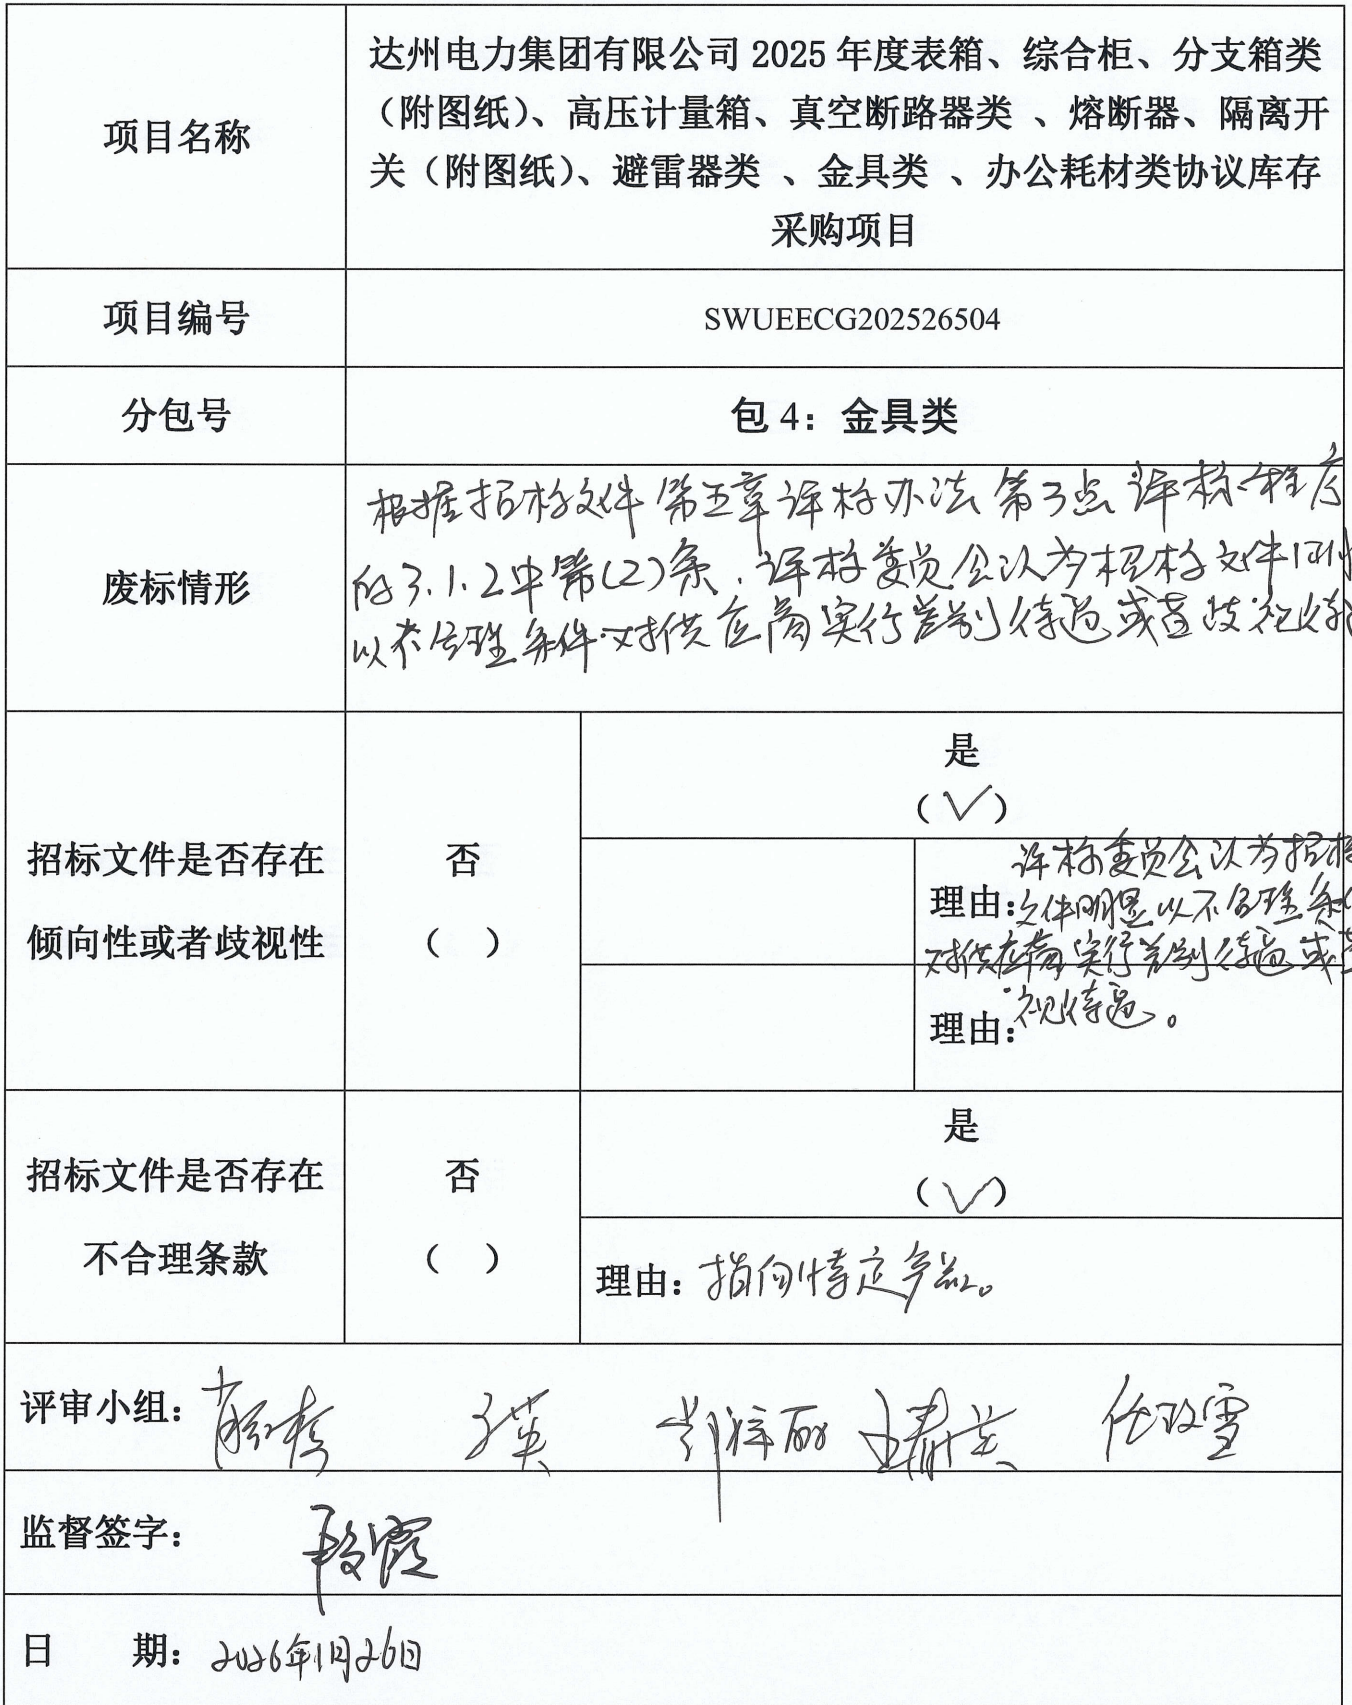 项目名称
达州电力集团有限公司 2025 年度表箱、综合柜、分支箱类
（附图纸）、高压计量箱、真空断路器类 、熔断器、隔离开
关（附图纸）、避雷器类 、金具类 、办公耗材类协议库存
采购项目
项目编号
SWUEECG202526504
分包号
包 4：金具类
废标情形
根据招标文件第五章评标办法第3点评标程序
的3.1.2中第(2)条，评标委员会认为招标文件明
以不合理条件对供应商实行差别待遇或者歧视待
招标文件是否存在
倾向性或者歧视性
否
（ ）
是
（√）
评标委员会认为招标
理由：文件明显以不合理条件
对供应商实行差别待遇或者
视待遇。
理由：
招标文件是否存在
不合理条款
否
（ ）
是
（√）
理由：指向特定产品。
评审小组：
监督签字：段霞
日 期：2026年1月26日